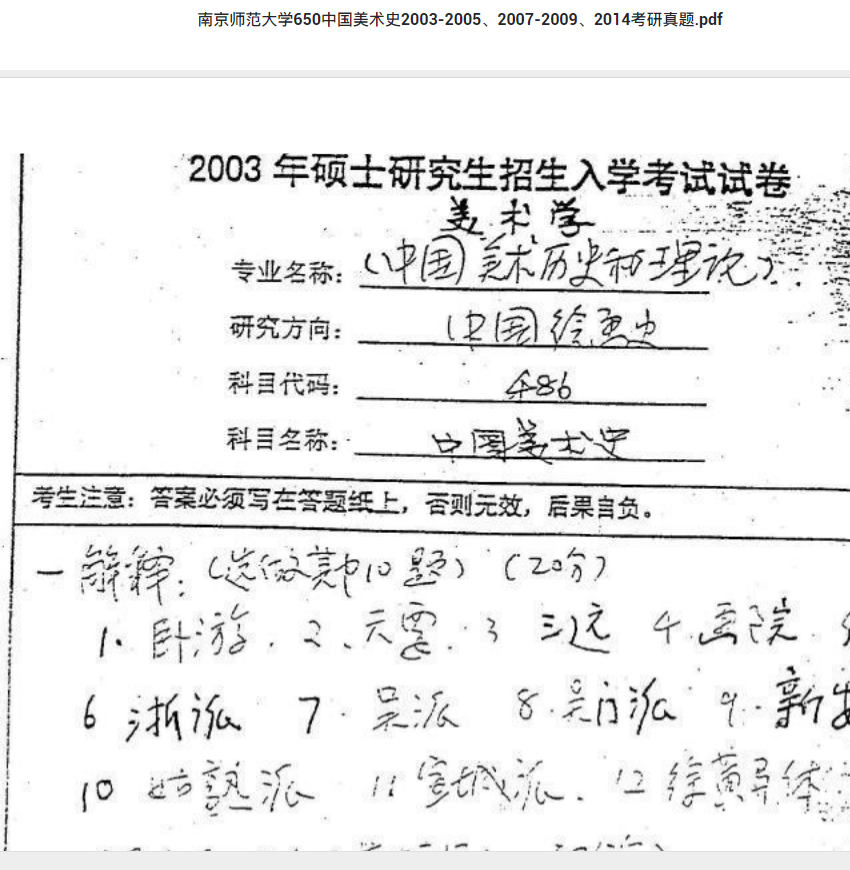 南京师范大学650中国美术史2003-2005、2007-2009、2014考研真题.pdf
2003 年硕士研究生招生入学考试试卷
美术学
专业名称：（中国美术历史和理论）
研究方向：（中国绘画史
科目代码：486
科目名称：中国美术史
考生注意：答案必须写在答题纸上，否则无效，后果自负。
一 解释：（选做其中10题）（20分）
1、卧游、2、天 3 三远 4.画院
6 浙派 7. 吴派 8.吴门派 9.新安
10 姑熟派 11 宣城派、12 徐黄异体